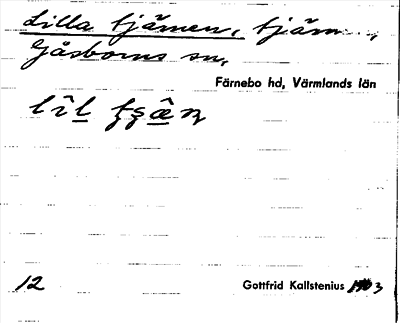 Lilla tjärnen, tjärn ,
Gåsborns sn,
Färnebo hd, Värmlands län
12
Gottfrid Kallstenius 1903